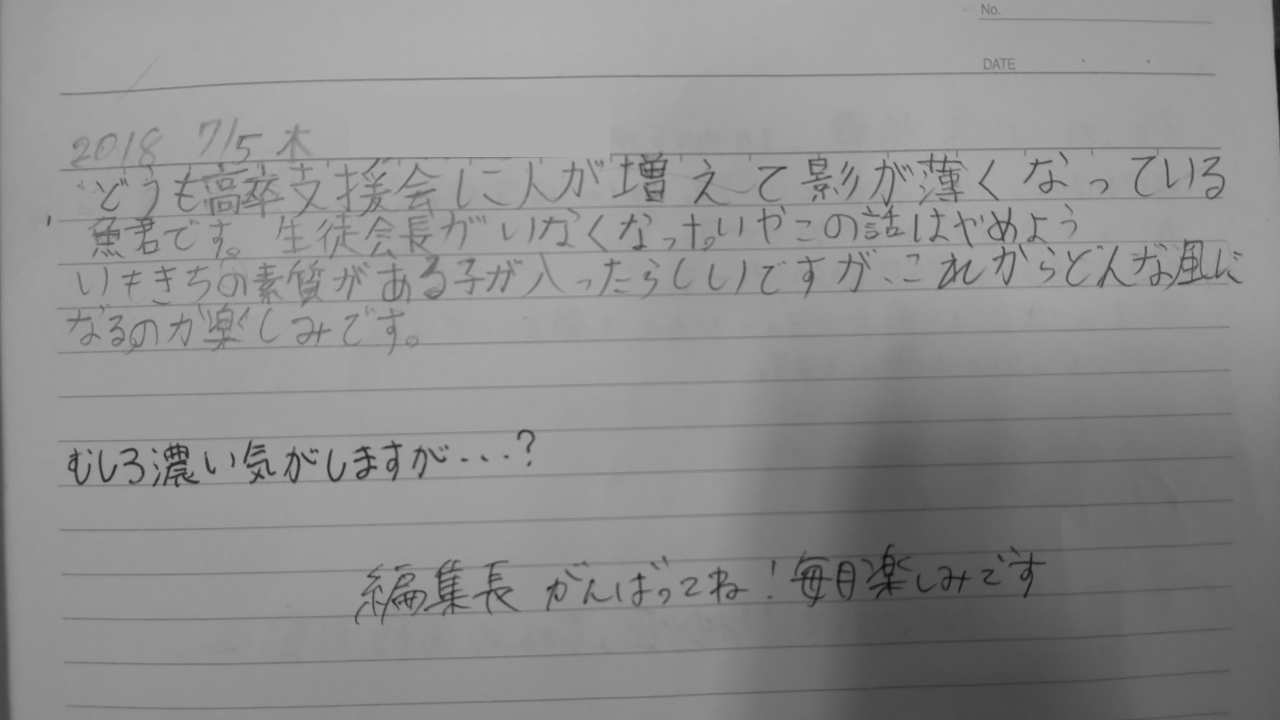 No.
DATE
2018 7/5 木
どうも高卒支援会に人が増えて影が薄くなっている
魚君です。生徒会長がいなくなった。いやこの話はやめよう
いもきちの素質がある子が入ったらしいですが、これからどんな風に
なるのか楽しみです。
むしろ濃い気がしますが...?
編集長 がんばってね!毎日楽しみです